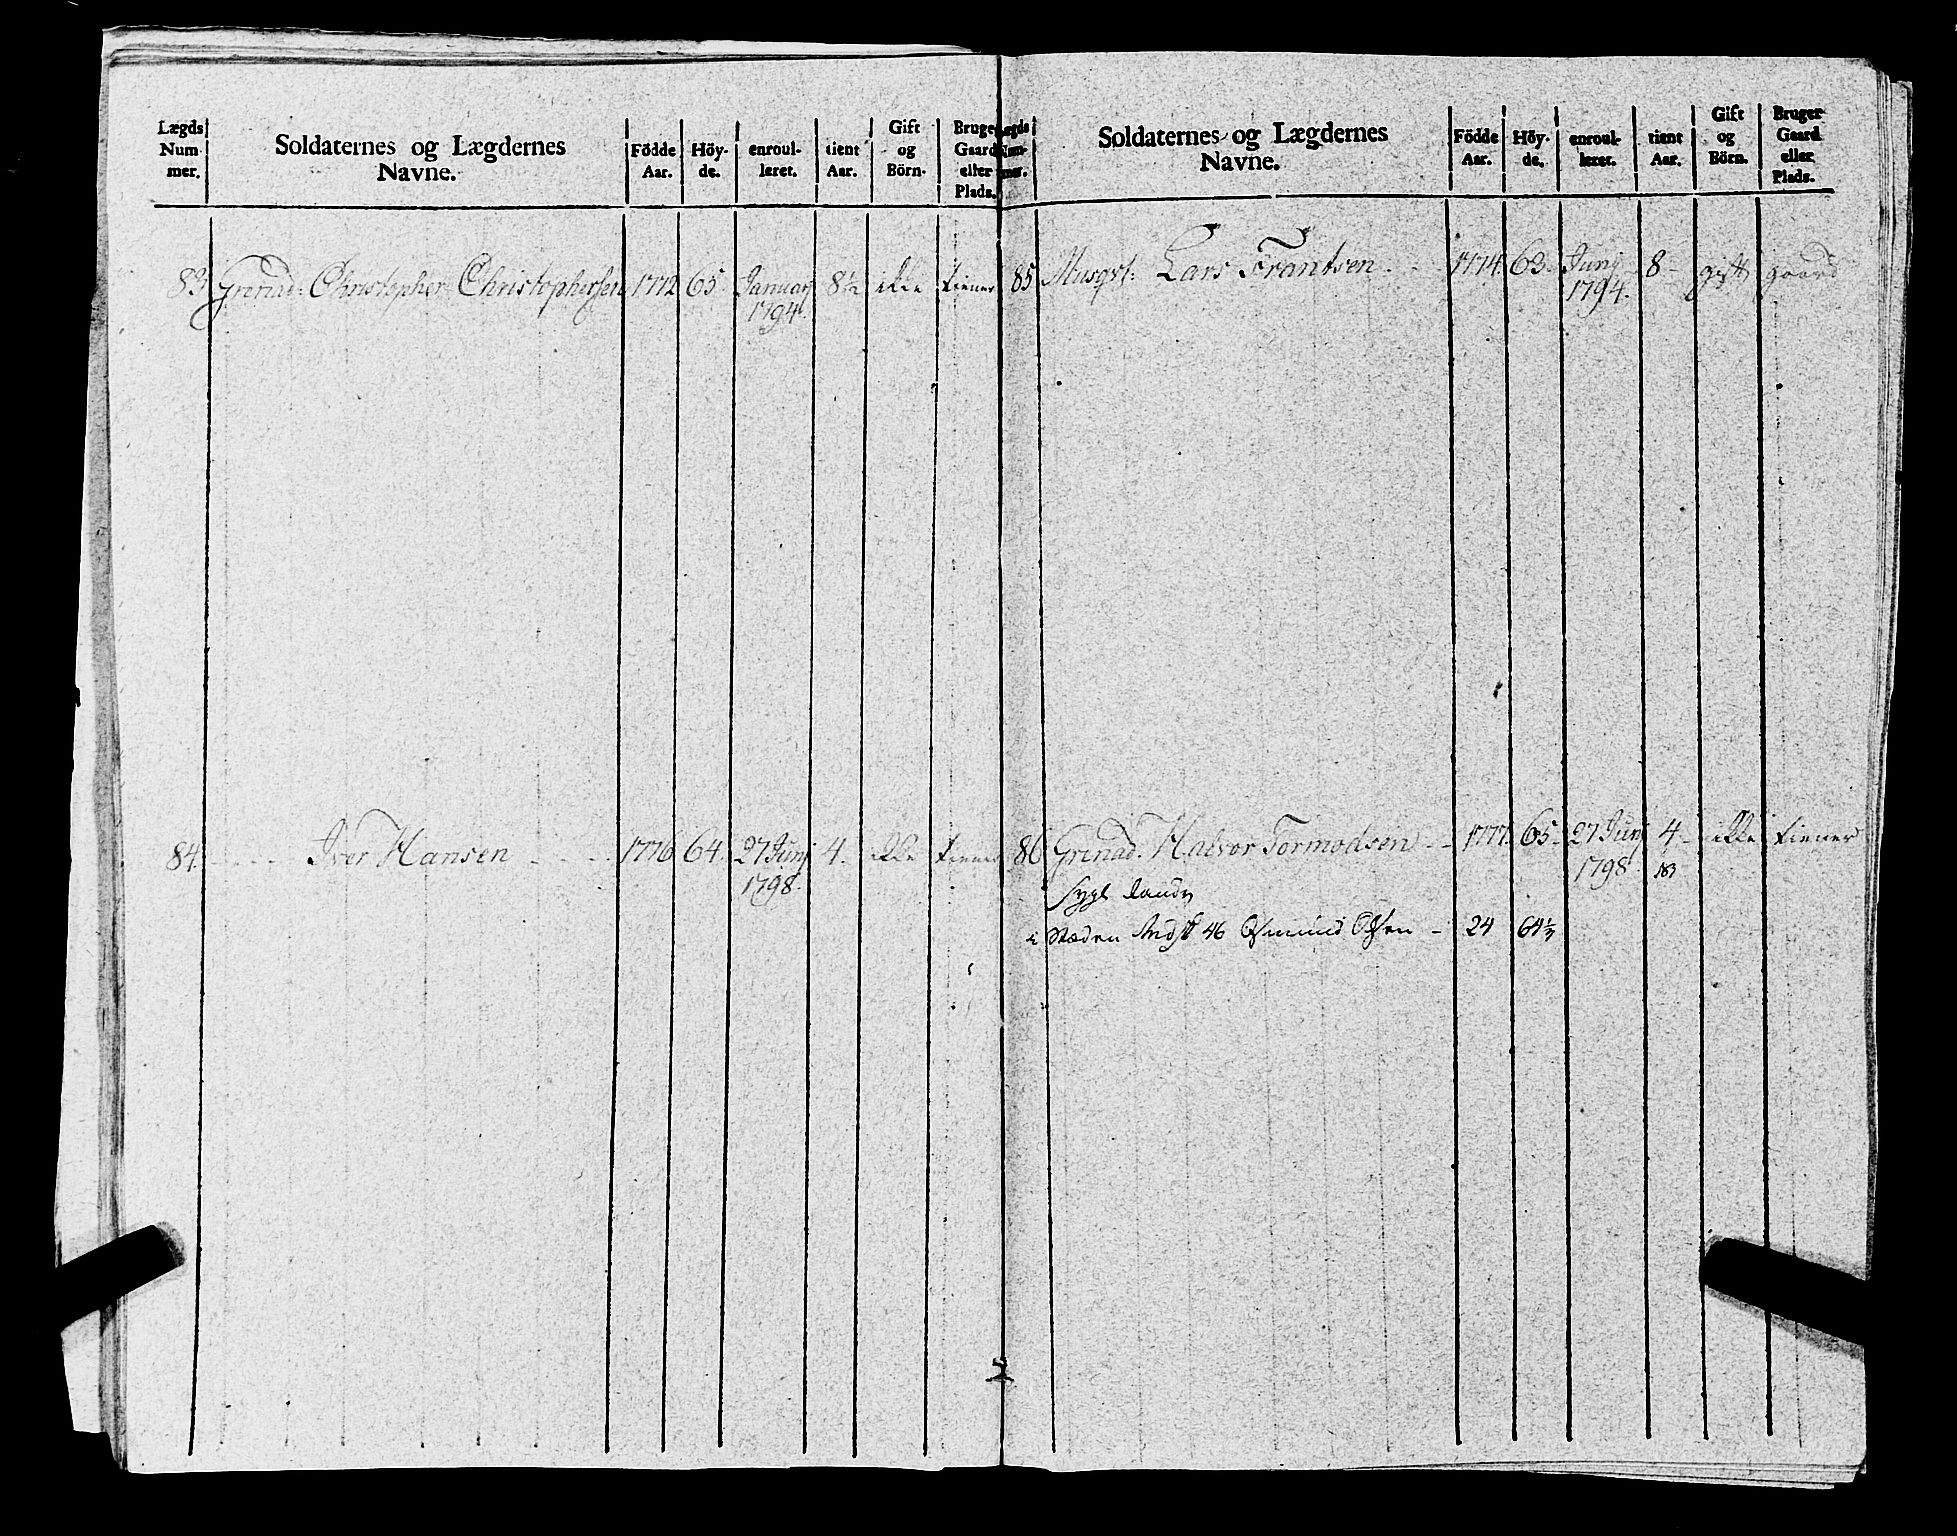 Lægds Num- mer. Soldaternes og Lægdernes Navne. Födde Aar. Höy- de. enroul- leret. tient Aar. Gift og Börn. Bruger Gaard eller Plads.
83 Grenad: Christopher Christophersen 1772 65 Januarj 8½ ikke tiener
1794.
84. Iver Hansen 1776 64. 27 Junj 4. ikke tiener
1798.
Lægds Num- mer. Soldaternes og Lægdernes Navne. Födde Aar. Höy- de. enroul- leret. tient Aar. Gift og Börn. Bruger Gaard eller Plads.
85 Musqt: Lars Frantsen 1774. 63 Junj 8 gift gaard
1794.
86 Grenad. Halvor Tormodsen 1777. 65 27 Junj 4 ikke tiener
1798.
i Stæden 46 Osmund Olsen 24 64½